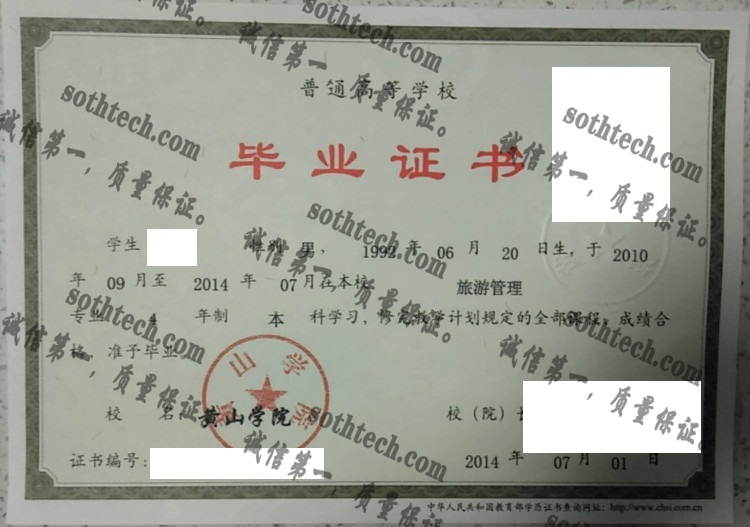 普通高等学校
毕业证书
学生 性别 男， 1992 年 06 月 20 日生，于 2010
年 09 月至 2014 年 07 月在本校 旅游管理
专业 4 年制 本 科学习，修完教学计划规定的全部课程，成绩合
格 准予毕业
黄山学院
校 名： 黄山学院 校（院）长
证书编号：
2014 年 07 月 01 日
中华人民共和国教育部学历证书查询网址：http://www.chsi.com.cn
sothtech.com
诚信第一，质量保证。
sothtech.com
诚信第一，质量保证。
sothtech.com
诚信第一，质量保证。
sothtech.com
诚信第一，质量保证。
sothtech.com
诚信第一，质量保证。
sothtech.com
诚信第一，质量保证。
sothtech.com
诚信第一，质量保证。
sothtech.com
诚信第一，质量保证。